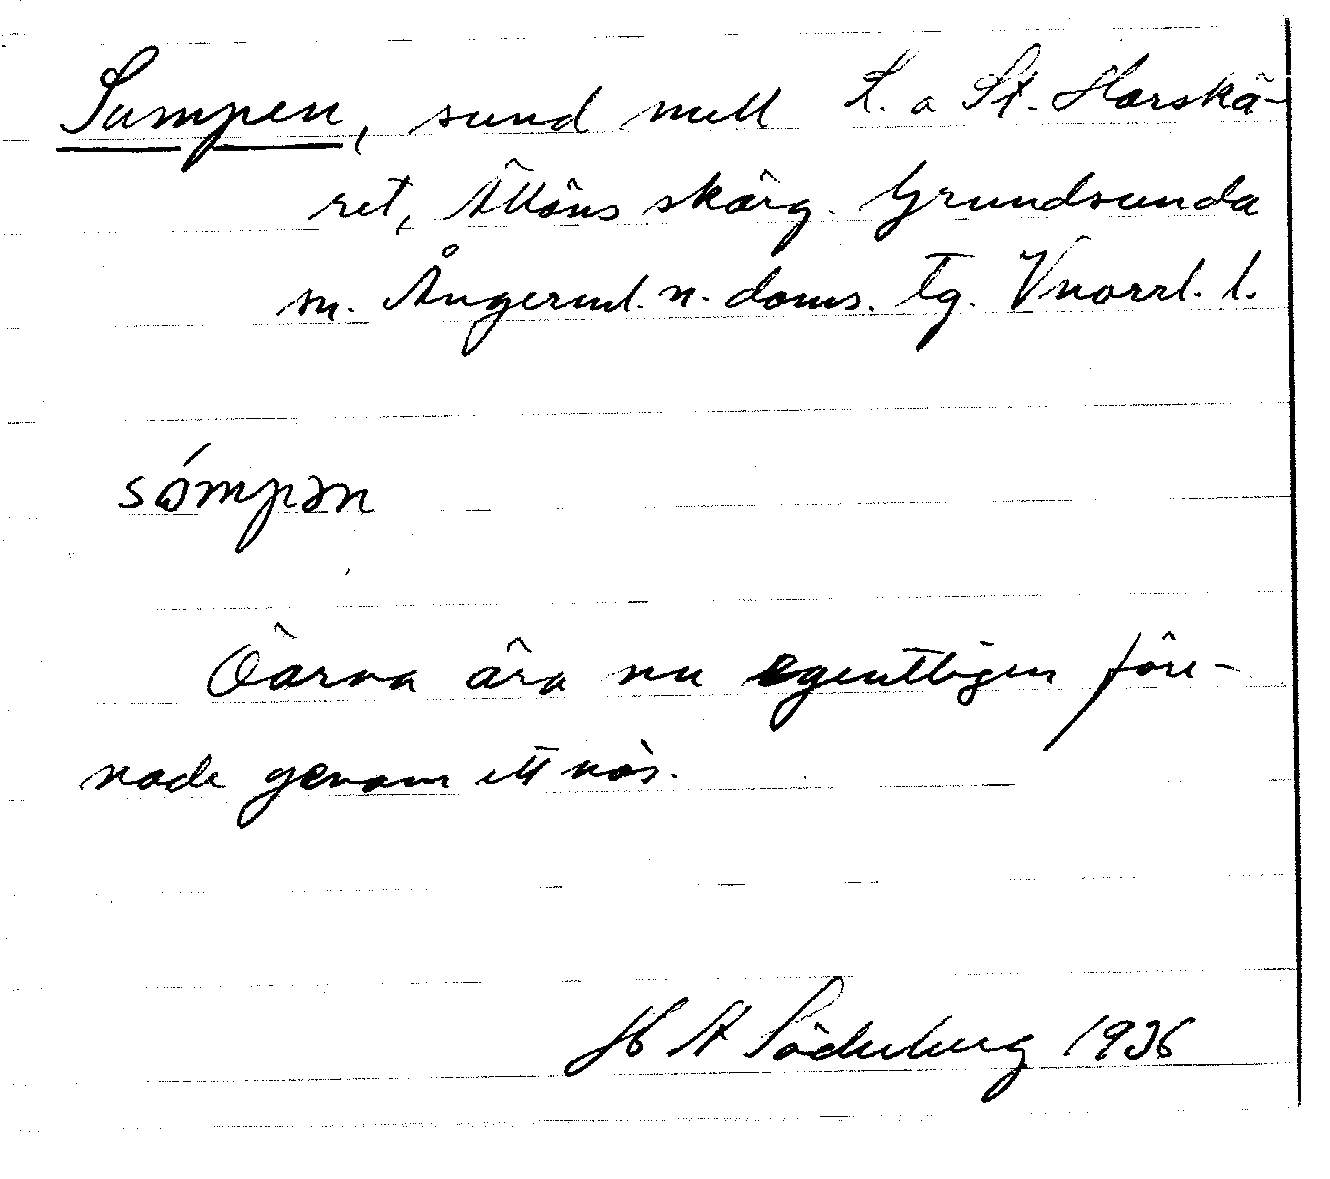 Sumpen, sund mell L. a St. Harskä-
ret, Ällöns skärg. Grundsunda
sn. Ångerml. n. doms. tg. Vnorrl. l.
sómpən
Öarna äro nu egentligen före-
nade genom ett näs.
H A Söderberg 1936